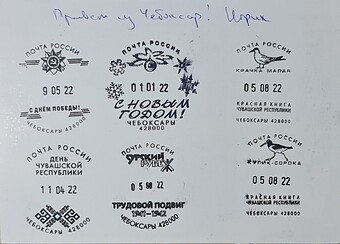 Привет из Чебоксар! Юрик
ПОЧТА РОССИИ
9 05 22
С ДНЁМ ПОБЕДЫ!
ЧЕБОКСАРЫ 428000
ПОЧТА РОССИИ
01 01 22
С НОВЫМ
ГОДОМ!
ЧЕБОКСАРЫ
428000
ПОЧТА РОССИИ
КРАЧКА МАЛАЯ
05 08 22
КРАСНАЯ КНИГА
ЧУВАШСКОЙ РЕСПУБЛИКИ
ПОЧТА РОССИИ
ДЕНЬ
ЧУВАШСКОЙ
РЕСПУБЛИКИ
11 04 22
ЧЕБОКСАРЫ 428000
ПОЧТА РОССИИ
СУРСКИЙ
РУБЕЖ
05 08 22
ТРУДОВОЙ ПОДВИГ
1941-1942
ЧЕБОКСАРЫ 428000
ПОЧТА РОССИИ
КУЛИК-СОРОКА
05 08 22
КРАСНАЯ КНИГА
ЧУВАШСКОЙ РЕСПУБЛИКИ